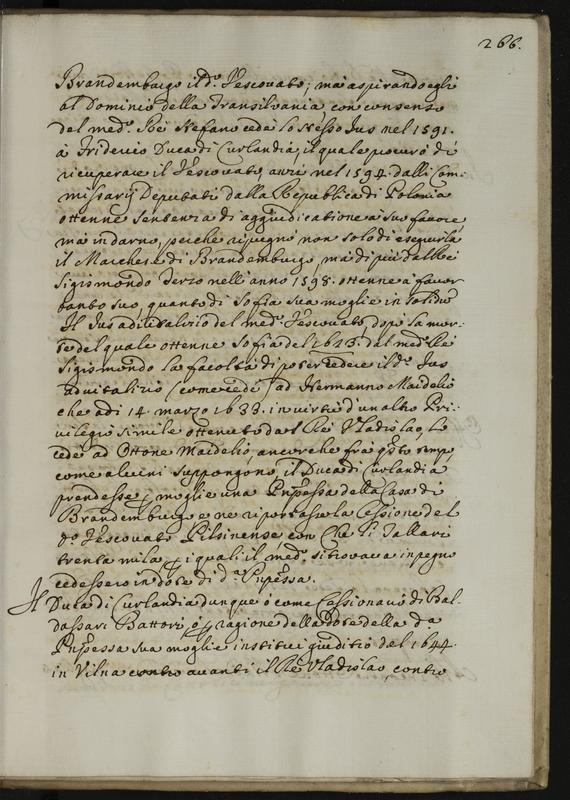 266.
Brandemburgo il d.º Vescovato; mà aspirando egli
al Dominio della Transilvania con consenso
del med.º Rè Stefano cede lo stesso Jus nel 1591.
à Friderico Duca di Curlandia, il quale procurò di
ricuperare il Vescovato, anzi nel 1594. dalli Com-
missarij Deputati dalla Republica di Polonia
ottenne sentenza di aggiudicatione à suo favore
mà indarno, perche ripugnò non solo di eseguirla
il Marchese di Brandemburgo, mà di più dal Rè
Sigismondo Terzo nell'anno 1598. ottenne à favor
tanto suo, quanto di Sofia sua moglie in solidum
Il Jus aduitalizio del med.º Vescovato, dopò la mor-
te del quale ottenne Sofia del 1623. dal med.º Rè
Sigismondo la facoltà di poter cedere il d.º Jus
aduitalizio (come cede) ad Hermanno Maidelio
che adi 14. marzo 1633. in virtù d'un altro Pri-
vilegio simile ottenuto dal Rè Vladislao, lo
cedè ad Ottone Maidelio, ancorche frà q̃sto tempo
come alcuni suppongono, il Duca di Curlandia
prendesse p̲ moglie una Pñpessa della Casa di
Brandemburgo e ne riportasse la Cessione del
d.º Vescovato Pilsinense con che li Tallari
trenta mila p̲ i quali il med.º si trovava in pegno
cedessero in dote di d.ª Pñpessa.
Il Duca di Curlandia dunque ò come Cessionario di Bal-
dassari Battori, ò p̲ ragione della Dote della d.a
Pñpessa sua moglie instituì giuditio del 1644.
in Vilna contro avanti il Rè Vladislao, contro